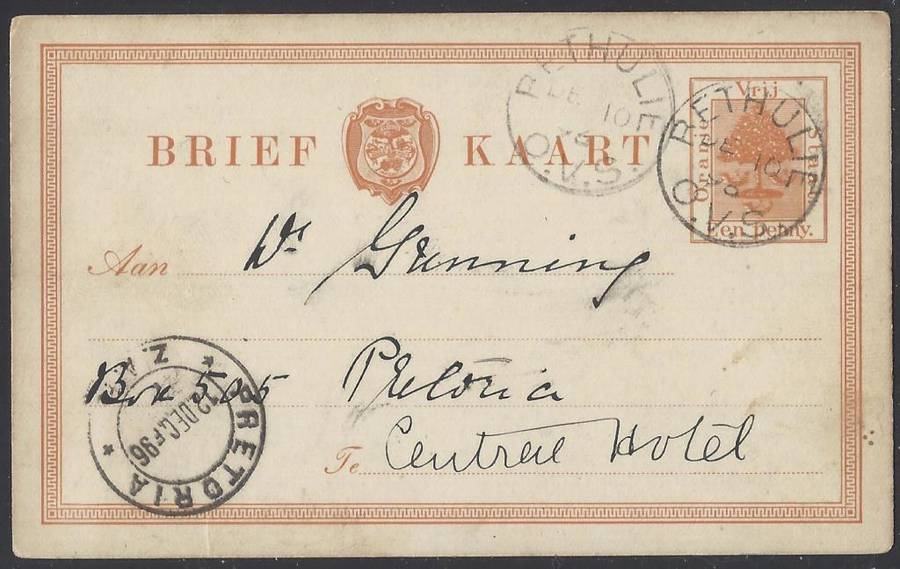 BRIEF KAART
Vrij
Oranje
Een Penny.
BETHULIE
DE 10
96
O.V.S.
BETHULIE
DE 10
96
O.V.S.
Aan Dr Gunning
Box 505 Pretoria
Te Central Hotel
PRETORIA
12.DEC.F96
Z.A.